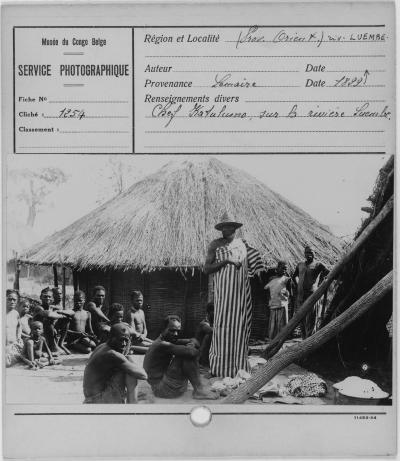 Musée du Congo Belge
SERVICE PHOTOGRAPHIQUE
Fiche No
Cliché : 1254
Classement :
Région et Localité (Prov. Orient.) riv. LUEMBE.
Auteur Date
Provenance Lemaire Date 1899
Renseignements divers
Chef Katuluno, sur la rivière Luembe
11453-54